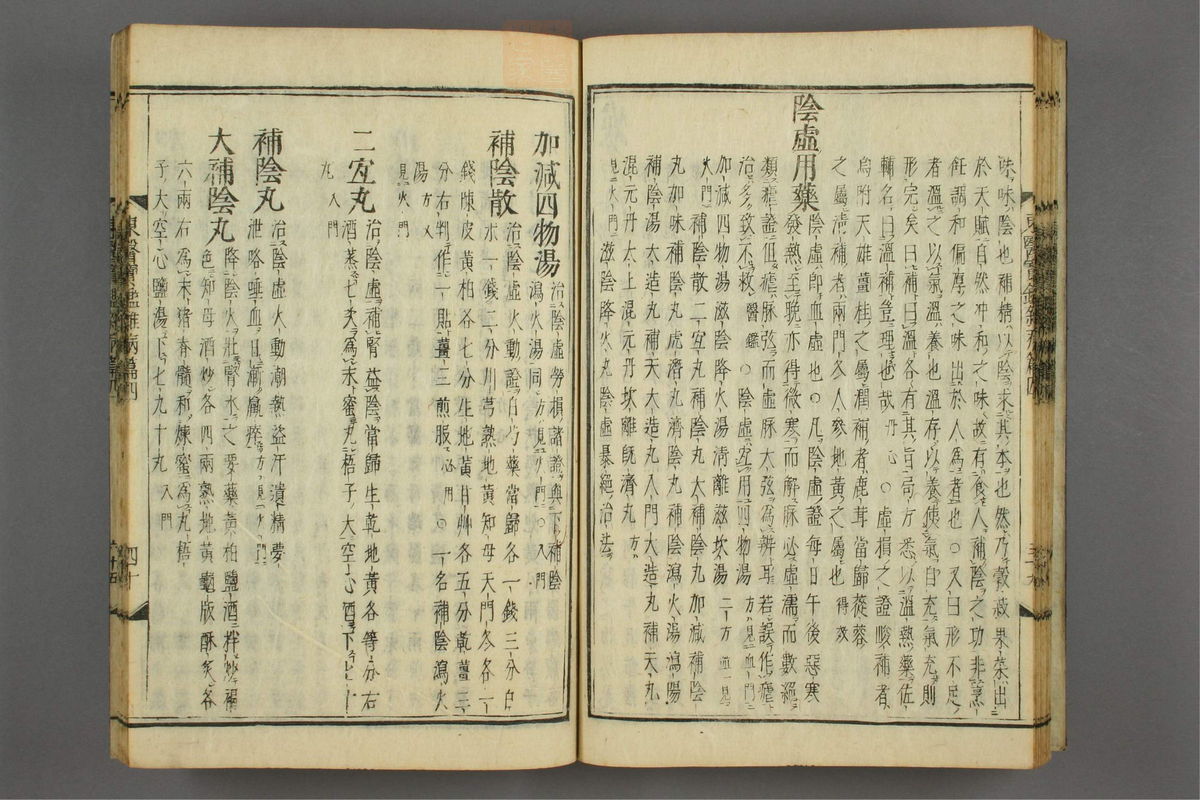 味味陰也補精以陰求其本也然乃穀菽果菜出
於天賦自然冲和之味故有食人補陰之功非烹
飪調和偏厚之味出於人為者也○又曰形不足
者溫之以氣溫養也溫存以養使氣自充氣充則
形完矣曰補曰溫各有其旨局方悉以溫熱藥佐
輔名曰溫補豈理也哉丹心○虛損之證峻補者
烏附天雄薑桂之屬潤補者鹿茸當歸蓯蓉
之屬淸補者兩門各人參地黃之屬也得效
陰虛用藥
陰虛即血虛也○凡陰虛證每日午後惡寒
發熱至晚亦得微寒而解脉必虛濡而數絕
類瘧證但瘧脉弦而虛脉大弦為辨耳若誤作瘧
治多致不救醫鑑○陰虛宜用四物湯方見血門
加減四物湯滋陰降火湯淸離滋坎湯二方並見
火門補陰散二宜丸補陰丸大補陰丸加減補陰
丸加味補陰丸虎潛丸濟陰丸補陰瀉火湯瀉陽
補陰湯太造丸補天大造丸入門大造丸補天丸
混元丹太上混元丹坎離既濟丸方
見火門滋陰降火丸陰虛暴絕治法
加減四物湯
治陰虛勞損諸證與下補陰
瀉火湯同方見火門○入門
補陰散
治陰虛火動證白芍藥當歸各一錢三分白
朮一錢二分川芎熟地黃知母天門冬各一
錢陳皮黃柏各七分生地黃甘艸各五分乾薑三
分右剉作一貼薑三煎服心門○一名補陰瀉火
湯方又
見火門
二宜丸
治陰虛補腎益陰當歸生乾地黃各等分右
酒蒸七次為末蜜丸梧子大空心酒下七十
丸入門
補陰丸
治陰虛火動潮熱盜汗潰精夢
泄咯唾血日漸羸瘁方見火門
大補陰丸
降陰火壯腎水之要藥黃柏鹽酒拌炒褐
色知母酒炒各四兩熟地黃龜版酥炙各
六兩右為末猪脊髓和煉蜜為丸梧
子大空心鹽湯下七九十丸入門